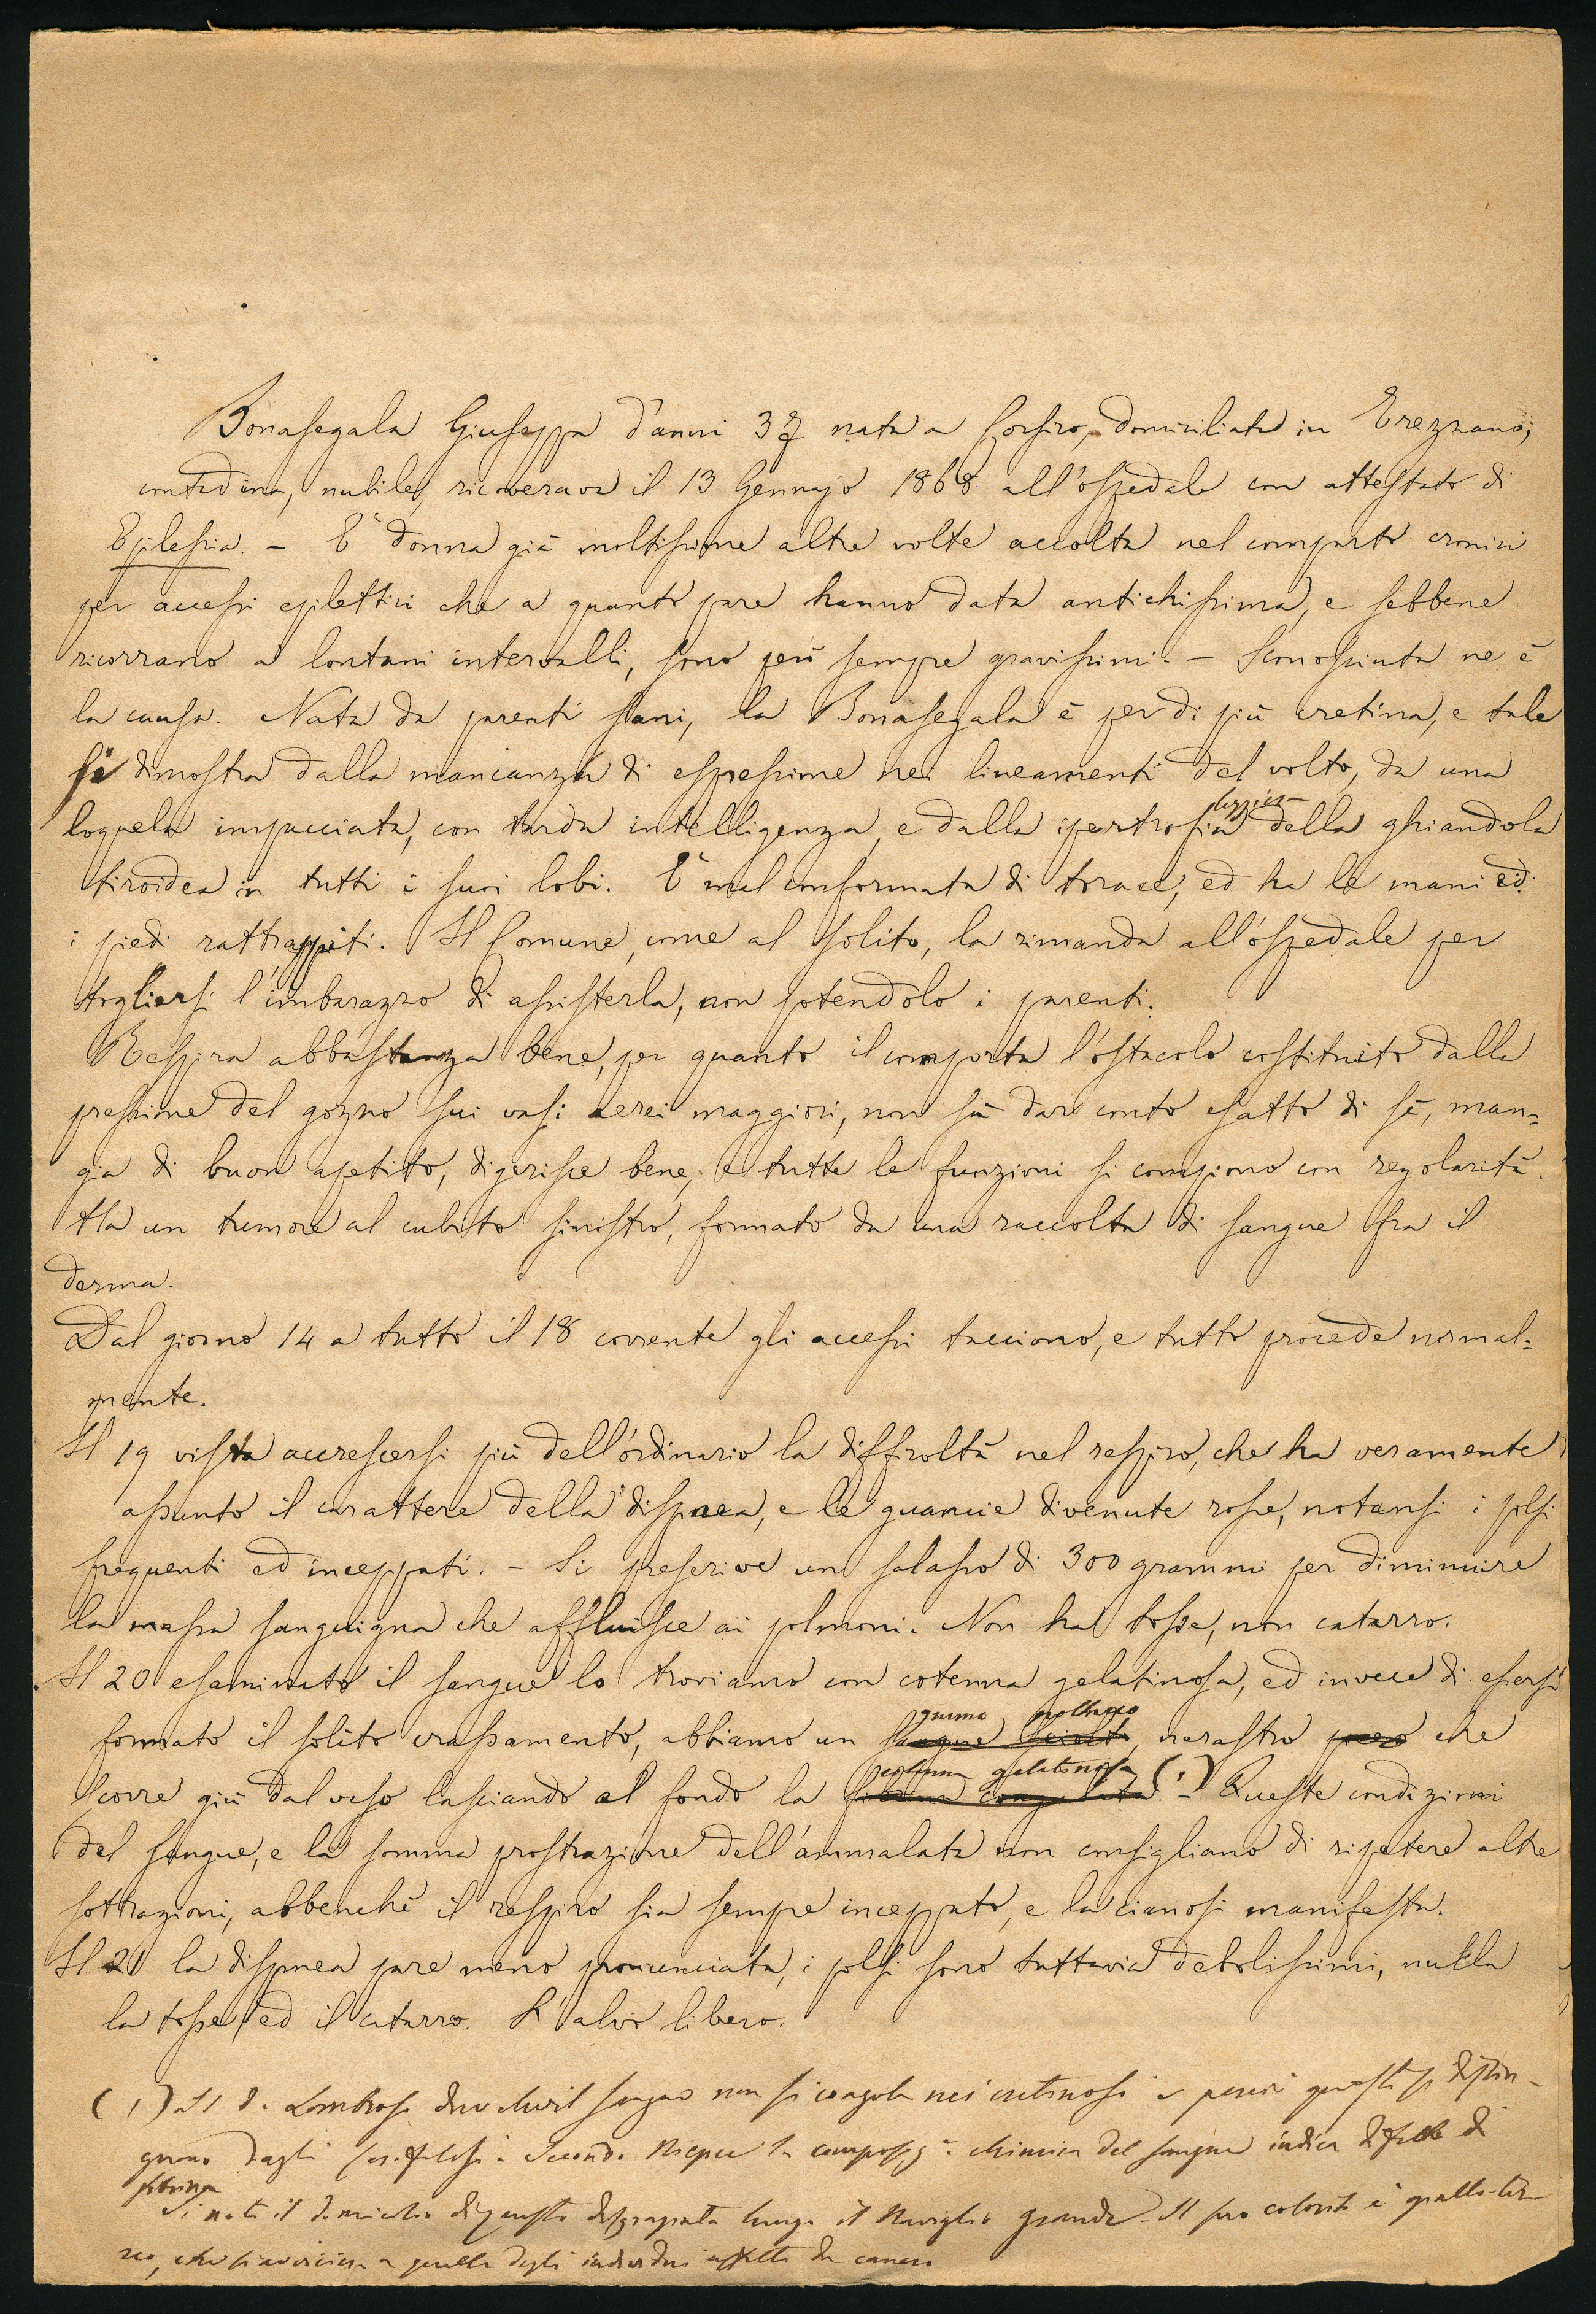 Bonasegala Giuseppa d'anni 37 nata a Corsico, domiciliata in Trezzano,
contadina, nubile, ricoverava il 13 Gennajo 1868 all'ospedale con attestato di
Epilessia. – E' donna già moltissime altre volte accolta nel comparto cronici
per accessi epilettici che a quanto pare hanno data antichissima, e sebbene
ricorrano a lontani intervalli, sono però sempre gravissimi. – Sconosciuta ne è
la causa. Nata da parenti sani, la Bonasegala è per di più cretina, e tale
si dimostra dalla mancanza di espressione nei lineamenti del volto, da una
loquela impacciata, con tarda intelligenza, e dalla ipertrofia della ghiandola
tiroidea in tutti i suoi lobi. E' mal conformata di torace, ed ha le mani ed
i piedi rattrappiti. Il Comune, come al solito, la rimanda all'ospedale per
togliersi l'imbarazzo di assisterla, non potendolo i parenti.
Respira abbastanza bene, per quanto il comporta l'ostacolo costituito dalla
pressione del gozzo sui vasi aerei maggiori, non sà dar conto esatto di sè, man=
gia di buon apetito, digerisce bene, e tutte le funzioni si compiono con regolarità.
Ha un tumore al cubito sinistro, formato da una raccolta di sangue fra il
derma.
Dal giorno 14 a tutto il 18 corrente gli accessi tacciono, e tutto procede normal=
mente.
Il 19 vista accrescersi più dell'ordinario la difficoltà nel respiro, che ha veramente
assunto il carattere della dispnea, e le guancie divenute rosse, notansi i polsi
frequenti ed inceppati. – Si prescrive un salasso di 300 grammi per diminuire
la massa sanguigna che affluisce ai polmoni. Non ha tosse, non catarro.
Il 20 esaminato il sangue lo troviamo con cotenna gelatinosa, ed invece di essersi
grumo
formato il solito crassamento, abbiamo un sangue sciolto, nerastro che
cotenna gelatinosa (1)
scorre giù dal vaso lasciando al fondo la fibrina coagulata. – Queste condizioni
del sangue, e la somma prostrazione dell'ammalata non consigliano di ripetere altre
sottrazioni, abbenchè il respiro sia sempre inceppato, e la cianosi manifesta.
Il 21 la dispnea pare meno pronunciata, i polsi sono tuttavia debolissimi, nulla
la tosse ed il catarro. L'alvo libero.
(1) Il D. Lombroso dice che il sangue non si coagola nei cretinosi e perciò questi si distin-
guono dagli scrofolosi. Secondo Niepce la composiz.e chimica del sangue indica difetto di
fibrina
Si noti il domicilio di questa disgraziata lungo il Naviglio grande. Il suo colorito è giallo-ter-
reo, che si avvicina a quello degli individui affetti da cancro